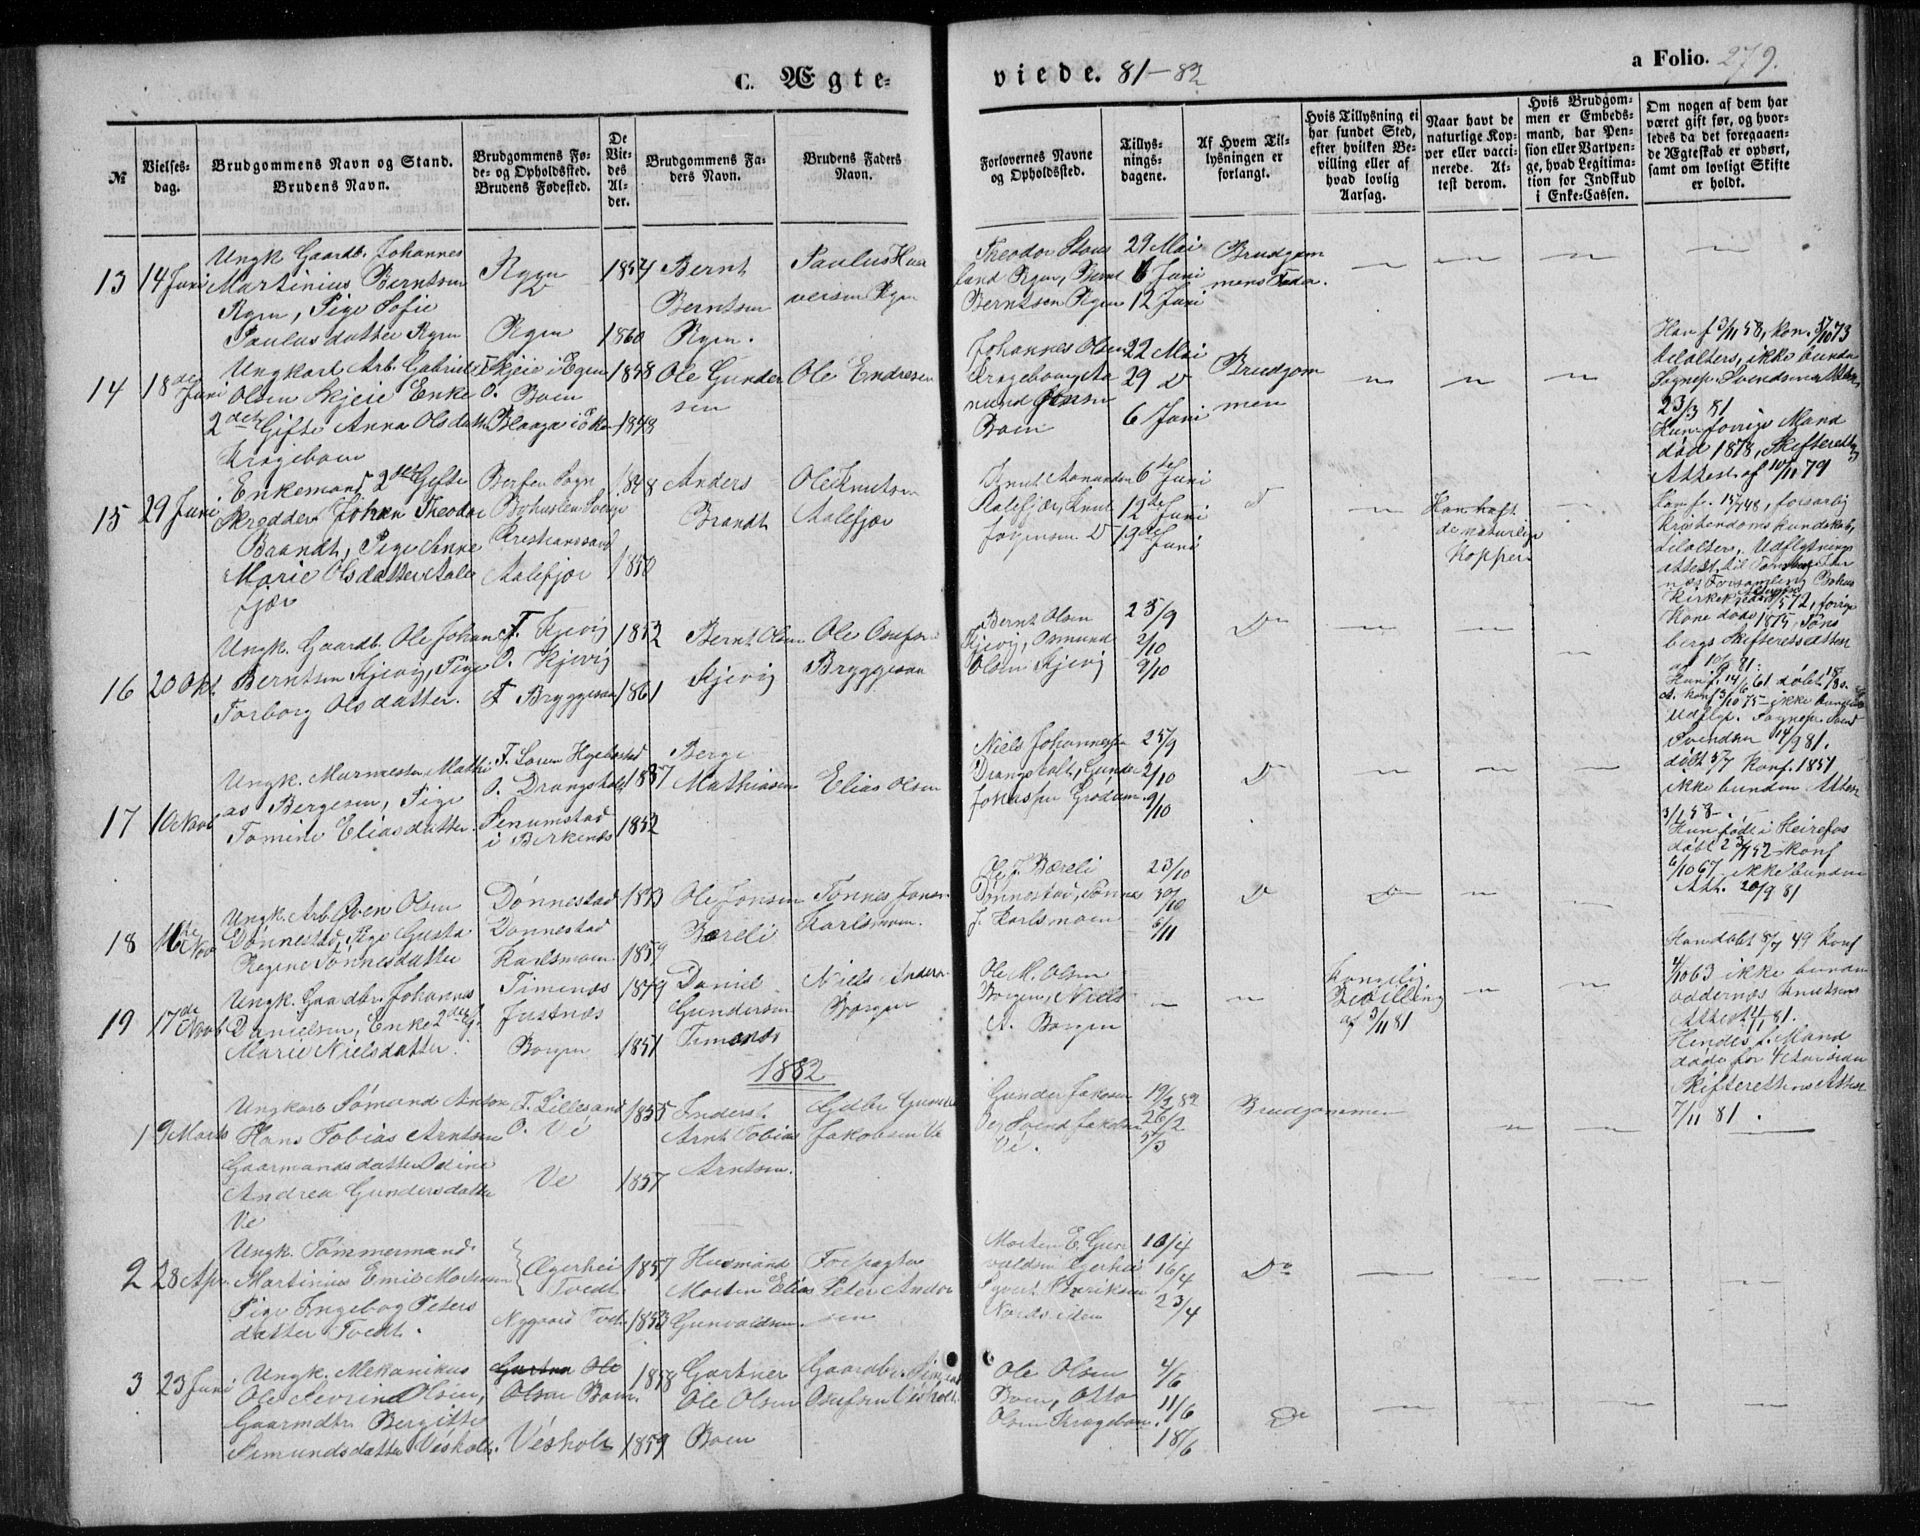 C. Ægte-
viede. 81-82
a Folio. 279.
№
Vielses-
dag.
Brudgommens Navn og Stand.
Brudens Navn.
Brudgommens Fø-
de- og Opholdssted.
Brudens Fødested.
De
Vie-
des
Al-
der.
Brudgommens Fa-
ders Navn.
Brudens Faders
Navn.
Forlovernes Navne
og Opholdssted.
Tillys-
nings-
dagene.
Af Hvem Til-
lysningen er
forlangt.
Hvis Tillysning ei
har fundet Sted,
efter hvilken Be-
villing eller af
hvad lovlig
Aarsag.
Naar havt de
naturlige Kop-
per eller vacci-
nerede. At-
test derom.
Hvis Brudgom-
men er Embeds-
mand, har Pen-
sion eller Vartpen-
ge, hvad Legitima-
tion for Indskud
i Enke-Cassen.
Om nogen af dem har
været gift før, og hvor-
ledes da det foregaaen-
de Ægteskab er ophørt,
samt om lovligt Skifte
er holdt.
13 14 Juni
Ungk Gaardb. Johannes
Martinius Berntsen
Rgen, Pige Sofie
Paulusdatter Rgen
Rgen
D
Rgen
1854
1860
Bernt
Berntsen
Rgen.
Paulus Haa
versen Rgen
Theodor Staus
land Rgen, Bernt
Berntsen Rgen
29 Mai
6 Juni
12 Juni
Brudgom
mens Fader.
14 18de Juni
Ungkarl Arb. Gabriel
Olsen Skjeie Enke
2det Gifte Anna Olsdatt
Krageboen
F. Skjeie i Egen
O. Boen
1848
1848
Ole Gunder
sen
Ole Endresen
Johannes Olsen
Krageboen
Boen
22 Mai
29 D
6 Juni
Brudgom
men
Han f 3/11 58, kon. 5/10 73
tilalters, ikke bunden
Sognep Svendsens Attest
23/3 81
Hun forrige Mand
død 1878, Skifterettens
Attest af 10/11 79
15 29 Juni
Enkemand 2det Gifte
Skredder Johan Theodor
Brandt, Pige Anne
Marie Olsdatter Aale
fjær
Bohuslen Sverige
Kristianssand
Aalefjær
1848
1850
Anders
Brandt
Ole Knutsen
Aalefjær
Knut Aanunden
Aalefjær, Knut
Jorgensen D
6te Juni
12te Juni
19de Juni
D
Han haft
de naturlige
Kopper
Kristendomskundskab,
tilalters. Udflytnings
attest til
Kone døde 1875, Tøns
bergs Skifteretsattest
af 10/6 81.
16 20 Okt
Ungk. Gaardb. Ole Johan
Berntsen Kjevig, Pige
Torborg Olsdatter.
F. Kjevig
O. Kjevig
F Bryggesaa
1852
1861
Bernt Olsen
Kjevig
Ole Osufsen
Bryggesaa
Bernt Olsen
Kjevig, Osmund
Olsen Kjevig
25/9
2/10
9/10
Do
Hun f. 14/6 61 døbt 18/8 s.
a. konf 3/10 75 – ikke bunden
Udflgt. Sognep.
Svendsen 14/9 81.
17 10 Novb
Ungk. Murmester Mathi
as Bergesen, Pige
Tomine Eliasdatter.
O. Drangsholt
Senumstad
i Birkenæs
1837
1852
Berge
Mathiasen
Elias Olsen
Niels Johannessen
Drangsholt, Gunder
25/9
2/10
9/10
Do
døbt 5/7 Konf. 1851
ikke bunden Attest
3/1 58 –
Hun født i Heirefos
døbt 23/4 52 – konf
6/10 67 – ikke bunden
Att. 20/9 81
18 16de Nov
Ungk. Arb. Even Olsen
Dønnestad, Pige Gusta
Regine Tønnesdatter
Dønnestad
Dønnestad
Karlsmoen
1853
1859
Ole Jonsen
Bæreli
Tønnes Jonsen
Karlsmoen.
Ole J. Bæreli
Dønnestad, Tønnes
J. Karlsmoen
23/10
30/10
6/11
D
D
19 17de Novb
Ungk. Gaardbr. Johannes
Danielsen, Enke 2det G.
Marie Nielsdatter.
Timenæs
Justnæs
Borgen
1849
1851
Daniel
Gundersen
Timenæs
Niels Anders.
Borgen
Ole M. Olsen
Borgen, Niels
A. Borgen
Kongelig
Bevilling
af 3/11 81
Han døbt 8/7 49 Konf
4/10 63 ikke bunden
oddernæs Knutsens
Attest 2/11 81.
Hendes f. Mand
døde for 4 Aar siden
Skifterettens Attest
7/11 81.
1882
1 9 Marts
Ungkarl Sømand Anton
Hans Tobias Arntsen
Gaarmandsdatter Odine
Andrea Gundersdatter
Ve
F. Lillesand
O. Ve
Ve
1855
1857
Inders.
Arnt Tobias
Arntsen.
Gdbr Gunder
Jakobsen Ve
Gunder Jakobsen
Ve, Svend Jakobsen
Ve.
19/2 82
26/2
5/3
Brudgommen
2 28 Apr.
Ungk. Tømmermand
Martinius Emil Mortensen
Pige Ingebog Peters
datter Tvedt.
Ægerhei
Tvedt
Nygaard Tvedt
1857
1853
Husmand
Morten Elias
Gunvaldsen.
Forpagter
Peter Ander
sen
Morten E. Gun
valdsen Egerhei
Syvert Henriksen
Nordsiden
10/4
16/4
23/4
Do
3 23 Juni
Ungk. Mekanikus
Ole Severin Olsen,
Gaarmdtr Bergitte
Simundsdatter Vesholt.
Gartner Ole
Olsen Boen.
Vesholt
1858
1859
Gartner
Ole Olsen
Boen
Gaardbr. Simund
Osufsen Vesholt
Ole Olsen
Boen, Otto
Olsen Kragboen.
4/6
11/6
18/6
Do